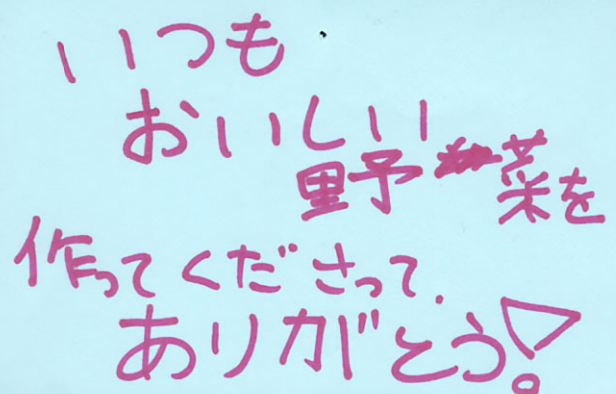 いつも
おいしい
野菜を
作ってくださって、
ありがとう!